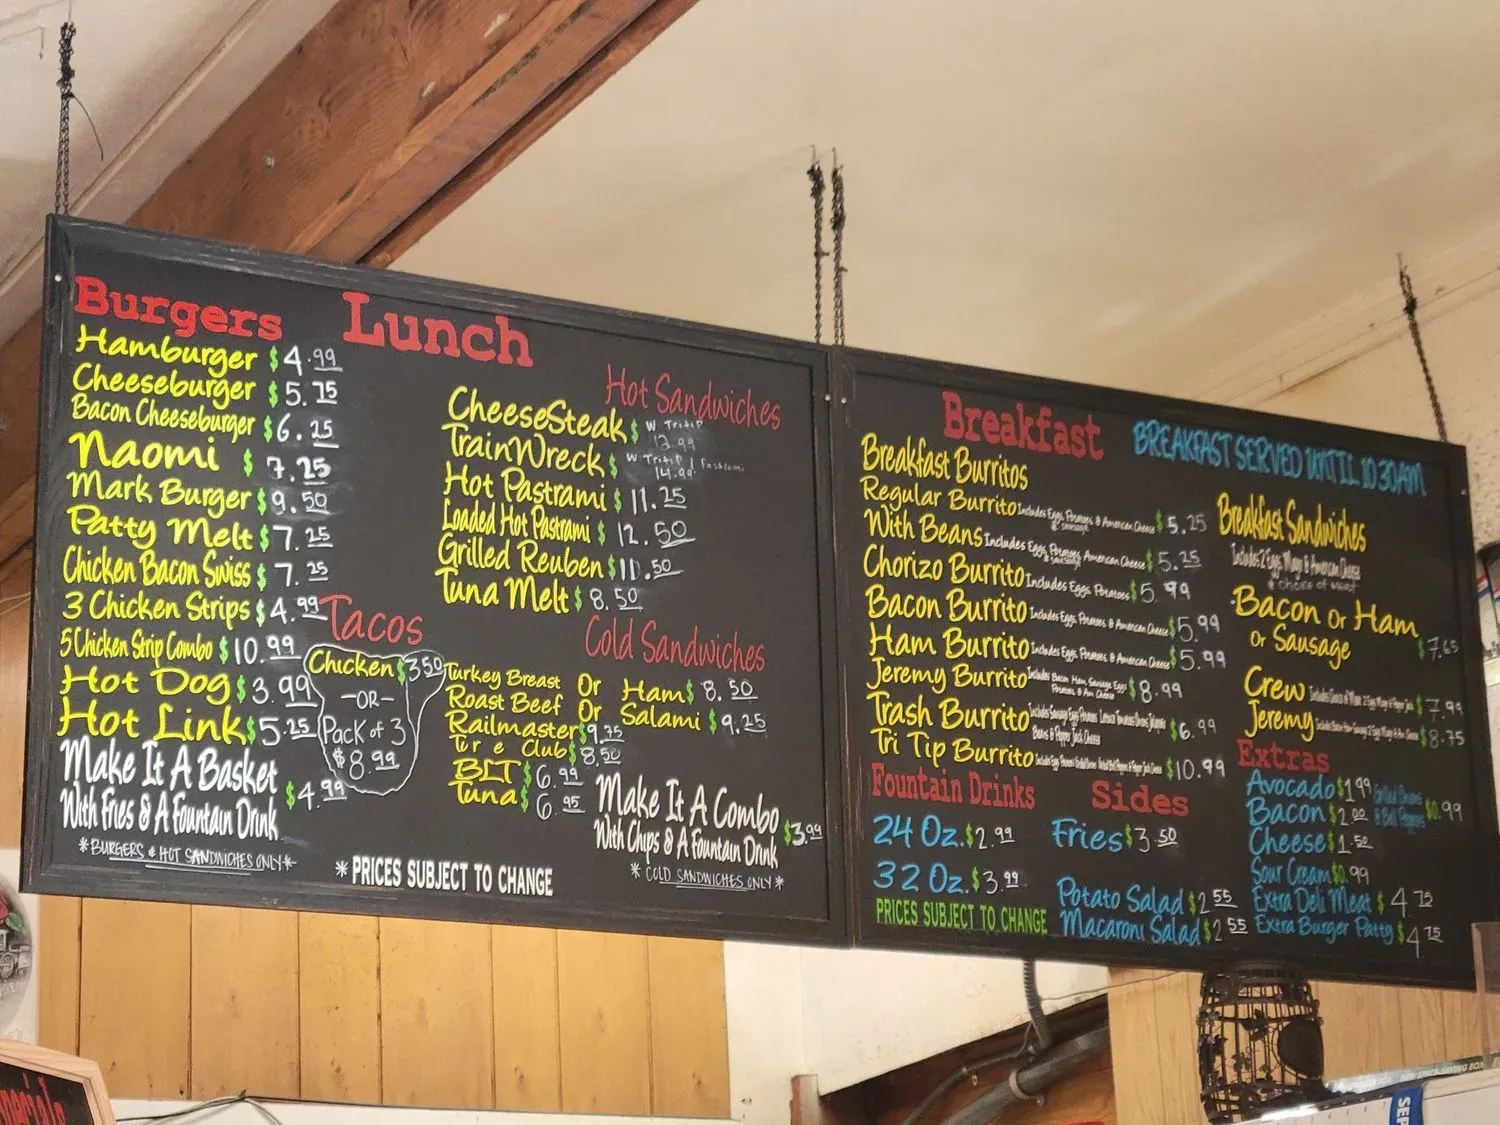 Burgers
Hamburger $4.99
Cheeseburger $5.75
Bacon Cheeseburger $6.25
Naomi $7.25
Mark Burger $9.50
Patty Melt $7.25
Chicken Bacon Swiss $7.25
3 Chicken Strips $4.99
5 Chicken Strip Combo $10.99
Hot Dog $3.99
Hot Link $5.25
Make It A Basket
With Fries & A Fountain Drink $4.99
*BURGERS & HOT SANDWICHES ONLY*
Lunch
Hot Sandwiches
CheeseSteak $ W Tritip 12.99
TrainWreck $ W Tritip / Pastrami 14.99
Hot Pastrami $11.25
Loaded Hot Pastrami $12.50
Grilled Reuben $11.50
Tuna Melt $8.50
Tacos
Chicken $3.50
-OR-
Pack of 3
$8.99
Cold Sandwiches
Turkey Breast Or Ham $8.50
Roast Beef Or Salami $9.25
Railmaster $9.75
Tire Club $8.50
BLT $6.99
Tuna $6.95
Make It A Combo
With Chips & A Fountain Drink $3.99
* COLD SANDWICHES ONLY *
*PRICES SUBJECT TO CHANGE
Breakfast
BREAKFAST SERVED UNTIL 10 30AM
Breakfast Burritos
Regular Burrito Includes Eggs, Potatoes, & American Cheese $5.25
& sausage
With Beans Includes Eggs, Potatoes, American Cheese $5.25
& sausage
Chorizo Burrito Includes Eggs, Potatoes $5.99
Bacon Burrito Includes Eggs, Potatoes & American Cheese $5.99
Ham Burrito Includes Eggs, Potatoes, & American Cheese $5.99
Jeremy Burrito Includes Bacon Ham, Sausage Eggs Potatoes, & Am Cheese $8.99
Trash Burrito Includes Sausage Eggs Potatoes Lettuce Tomatoes Onions Jalapeno Beans & Pepper Jack Cheese $6.99
Tri Tip Burrito $10.99
Breakfast Sandwiches
Includes 2 Eggs, Mayo & American Cheese
& choice of meat
Bacon Or Ham
Or Sausage $7.65
Crew $7.99
Jeremy $8.75
Fountain Drinks
24 Oz. $2.99
32 Oz. $3.99
PRICES SUBJECT TO CHANGE
Sides
Fries $3.50
Potato Salad $2.55
Macaroni Salad $2.55
Extras
Avocado $1.99
Bacon $2.00
Grilled Onions & Bell Peppers $0.99
Cheese $1.50
Sour Cream $0.99
Extra Deli Meat $4.75
Extra Burger Patty $4.75